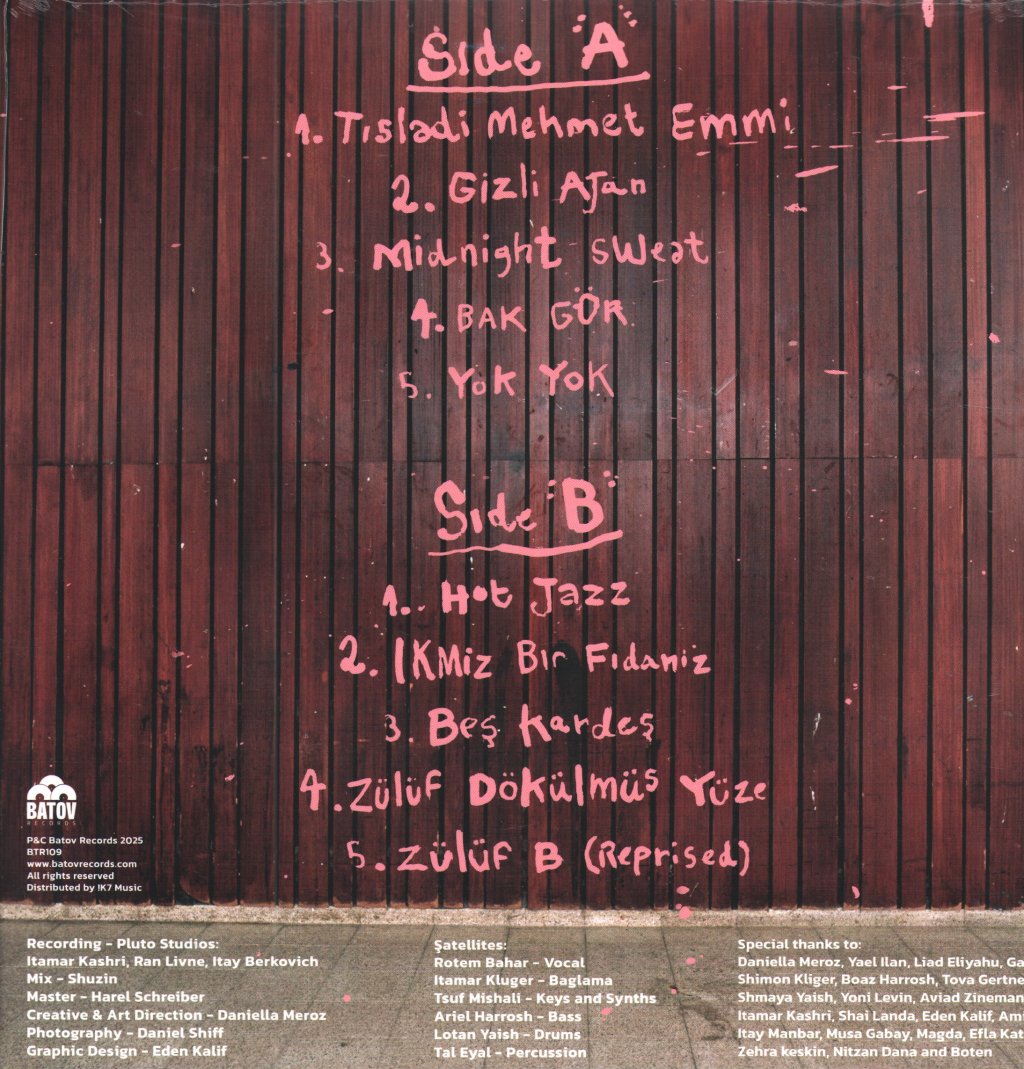 Side "A"
1. Tısladi Mehmet Emmi
2. Gizli Ajan
3. Midnight sweat
4. BAK GÖR
5. Yok Yok
Side "B"
1. Hot Jazz
2. IKMiz Bir Fidaniz
3. Beş Kardeş
4. Zülüf Dökülmüs Yüze
5. Zülüf B (Reprised)
BATOV
RECORDS
P&C Batov Records 2025
BTR109
www.batovrecords.com
All rights reserved
Distributed by !K7 Music
Recording - Pluto Studios:
Itamar Kashri, Ran Livne, Itay Berkovich
Mix - Shuzin
Master - Harel Schreiber
Creative & Art Direction - Daniella Meroz
Photography - Daniel Shiff
Graphic Design - Eden Kalif
Şatellites:
Rotem Bahar - Vocal
Itamar Kluger - Baglama
Tsuf Mishali - Keys and Synths
Ariel Harrosh - Bass
Lotan Yaish - Drums
Tal Eyal - Percussion
Special thanks to:
Daniella Meroz, Yael Ilan, Liad Eliyahu, Ga
Shimon Kliger, Boaz Harrosh, Tova Gertne
Shmaya Yaish, Yoni Levin, Aviad Zineman
Itamar Kashri, Shai Landa, Eden Kalif, Ami
Itay Manbar, Musa Gabay, Magda, Efla Kat
Zehra keskin, Nitzan Dana and Boten